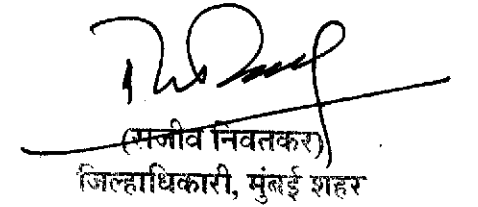 (राजीव निवतकर)
जिल्हाधिकारी, मुंबई शहर